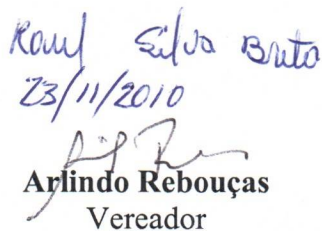 Raul Silva Brito
23/11/2010
Arlindo Rebouças
Vereador